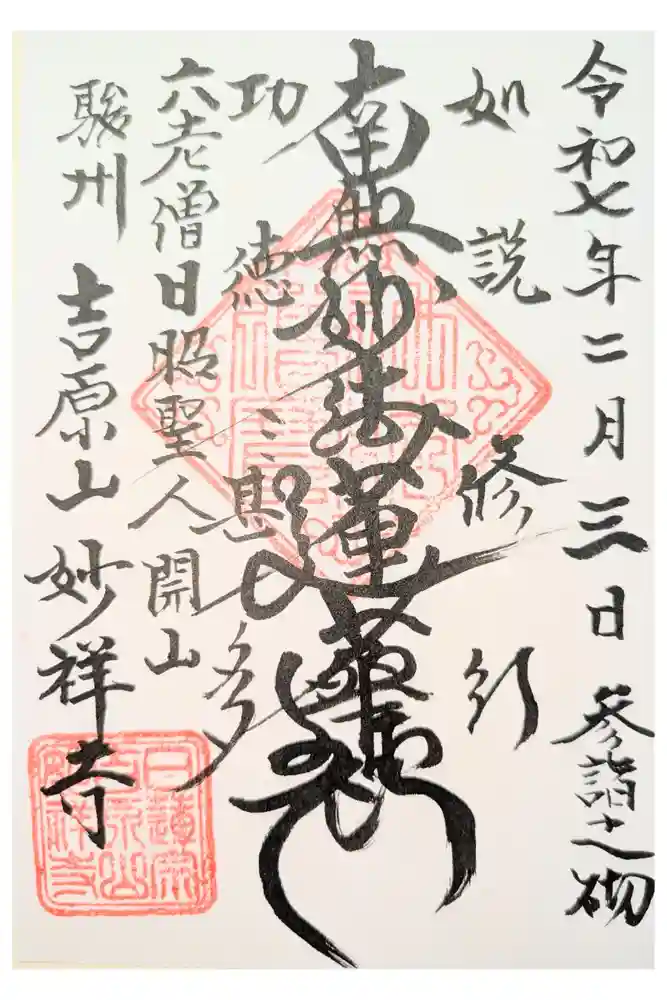 令和七年二月三日 参詣之砌
如説修行
南無妙法蓮華経
功徳 甚多
六老僧日昭聖人開山
駿州 吉原山 妙祥寺
日蓮宗
吉原山
妙祥寺